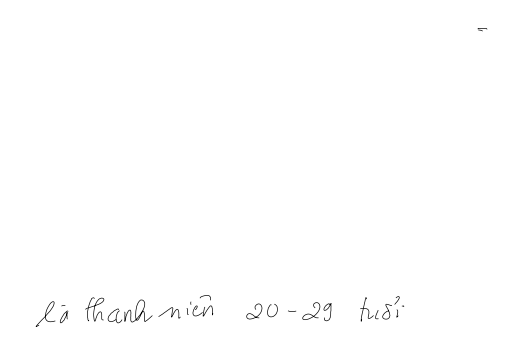 là thanh niên 20 - 29 tuổi